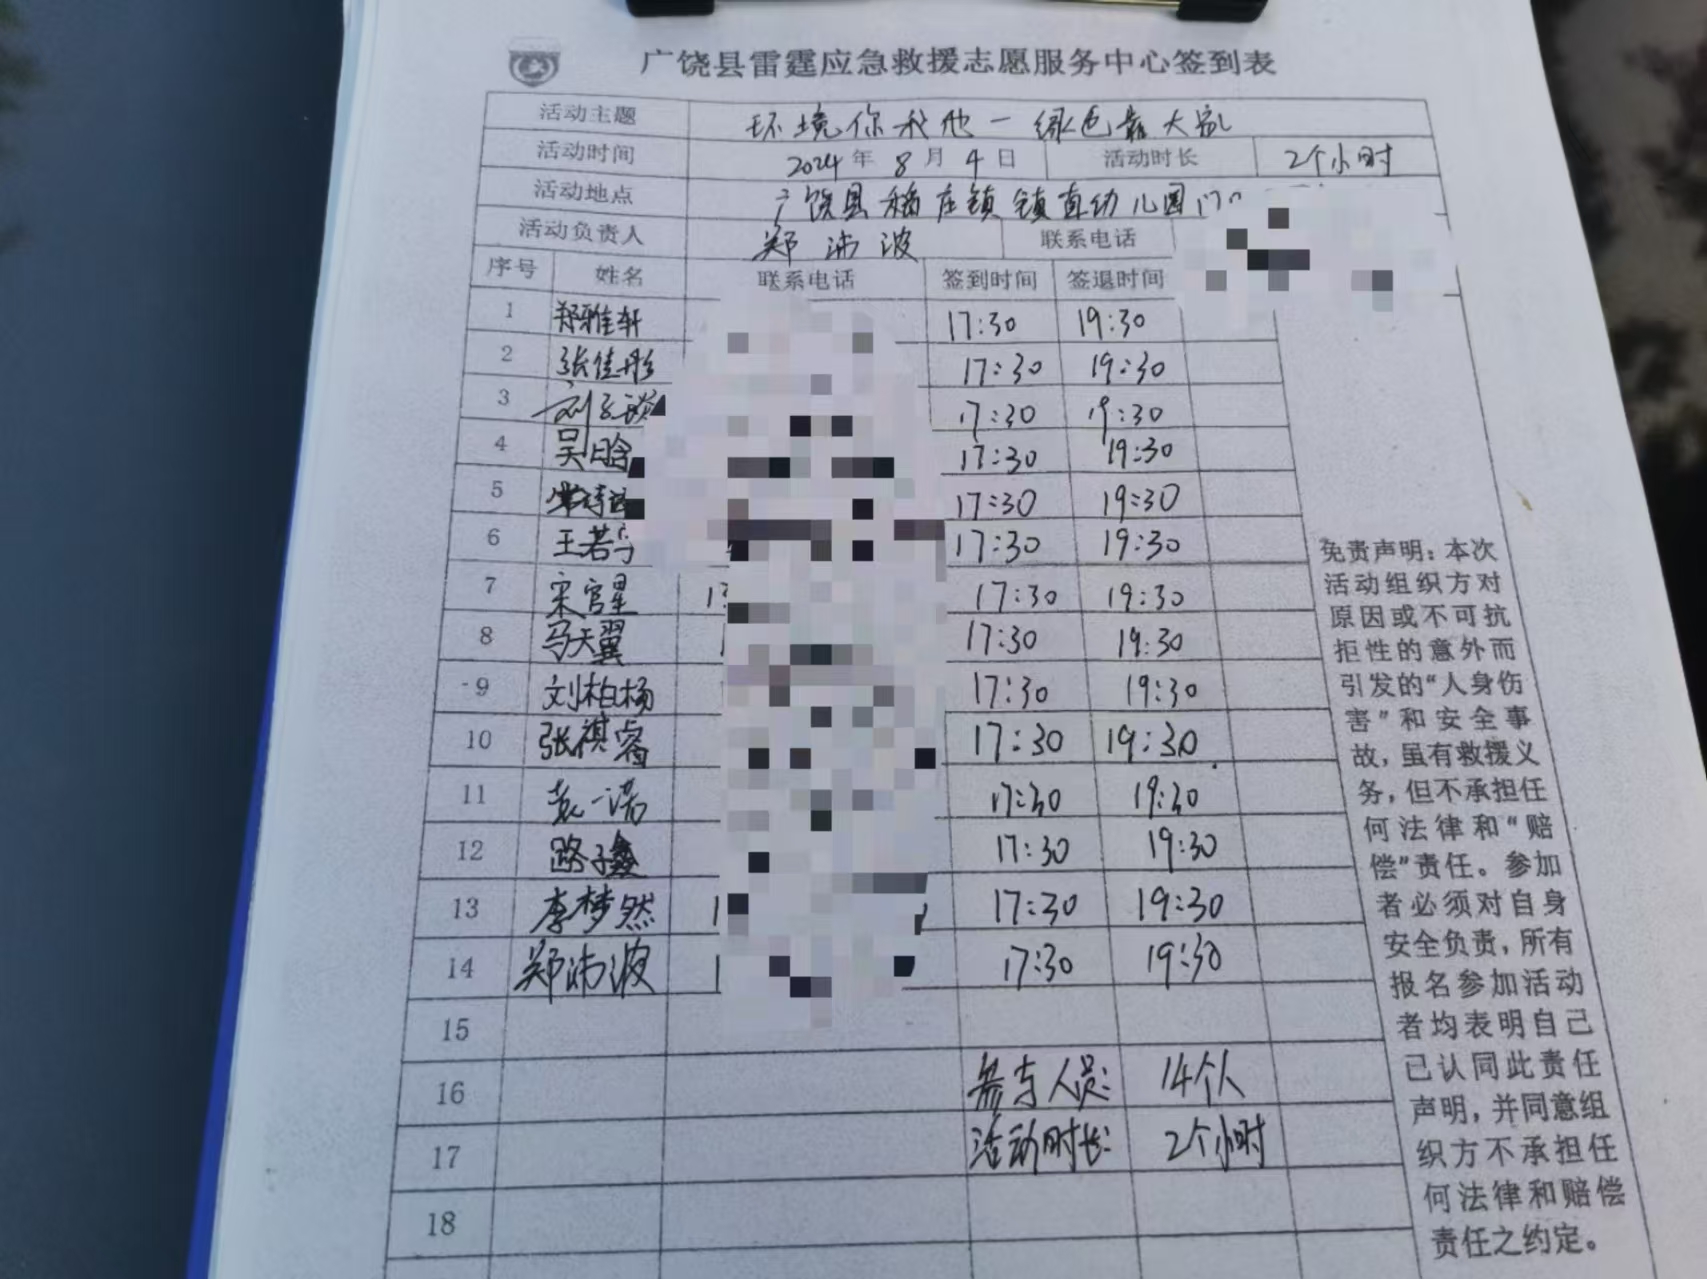 广饶县雷霆应急救援志愿服务中心签到表
活动主题 环境你我他一绿色靠大家
活动时间 2024年8月4日 活动时长 2个小时
活动地点 广饶县稻庄镇镇直幼儿园门口
活动负责人 郑沛波 联系电话
序号 姓名 联系电话 签到时间 签退时间
1 郑雅轩 17:30 19:30
2 张佳彤 17:30 19:30
3 刘 17:30 19:30
4 吴晗 17:30 19:30
5 17:30 19:30
6 王若宁 17:30 19:30
7 宋官星 1 17:30 19:30
8 马天翼 17:30 19:30
9 刘柏杨 17:30 19:30
10 张祺睿 17:30 19:30
11 袁一诺 17:30 19:30
12 路子鑫 17:30 19:30
13 李梦然 1 17:30 19:30
14 郑沛波 1 17:30 19:30
15
16 参与人员: 14个人
17 活动时长: 2个小时
18
免责声明:本次
活动组织方对
原因或不可抗
拒性的意外而
引发的“人身伤
害”和安全事
故,虽有救援义
务,但不承担任
何法律和“赔
偿”责任。参加
者必须对自身
安全负责,所有
报名参加活动
者均表明自己
已认同此责任
声明,并同意组
织方不承担任
何法律和赔偿
责任之约定。